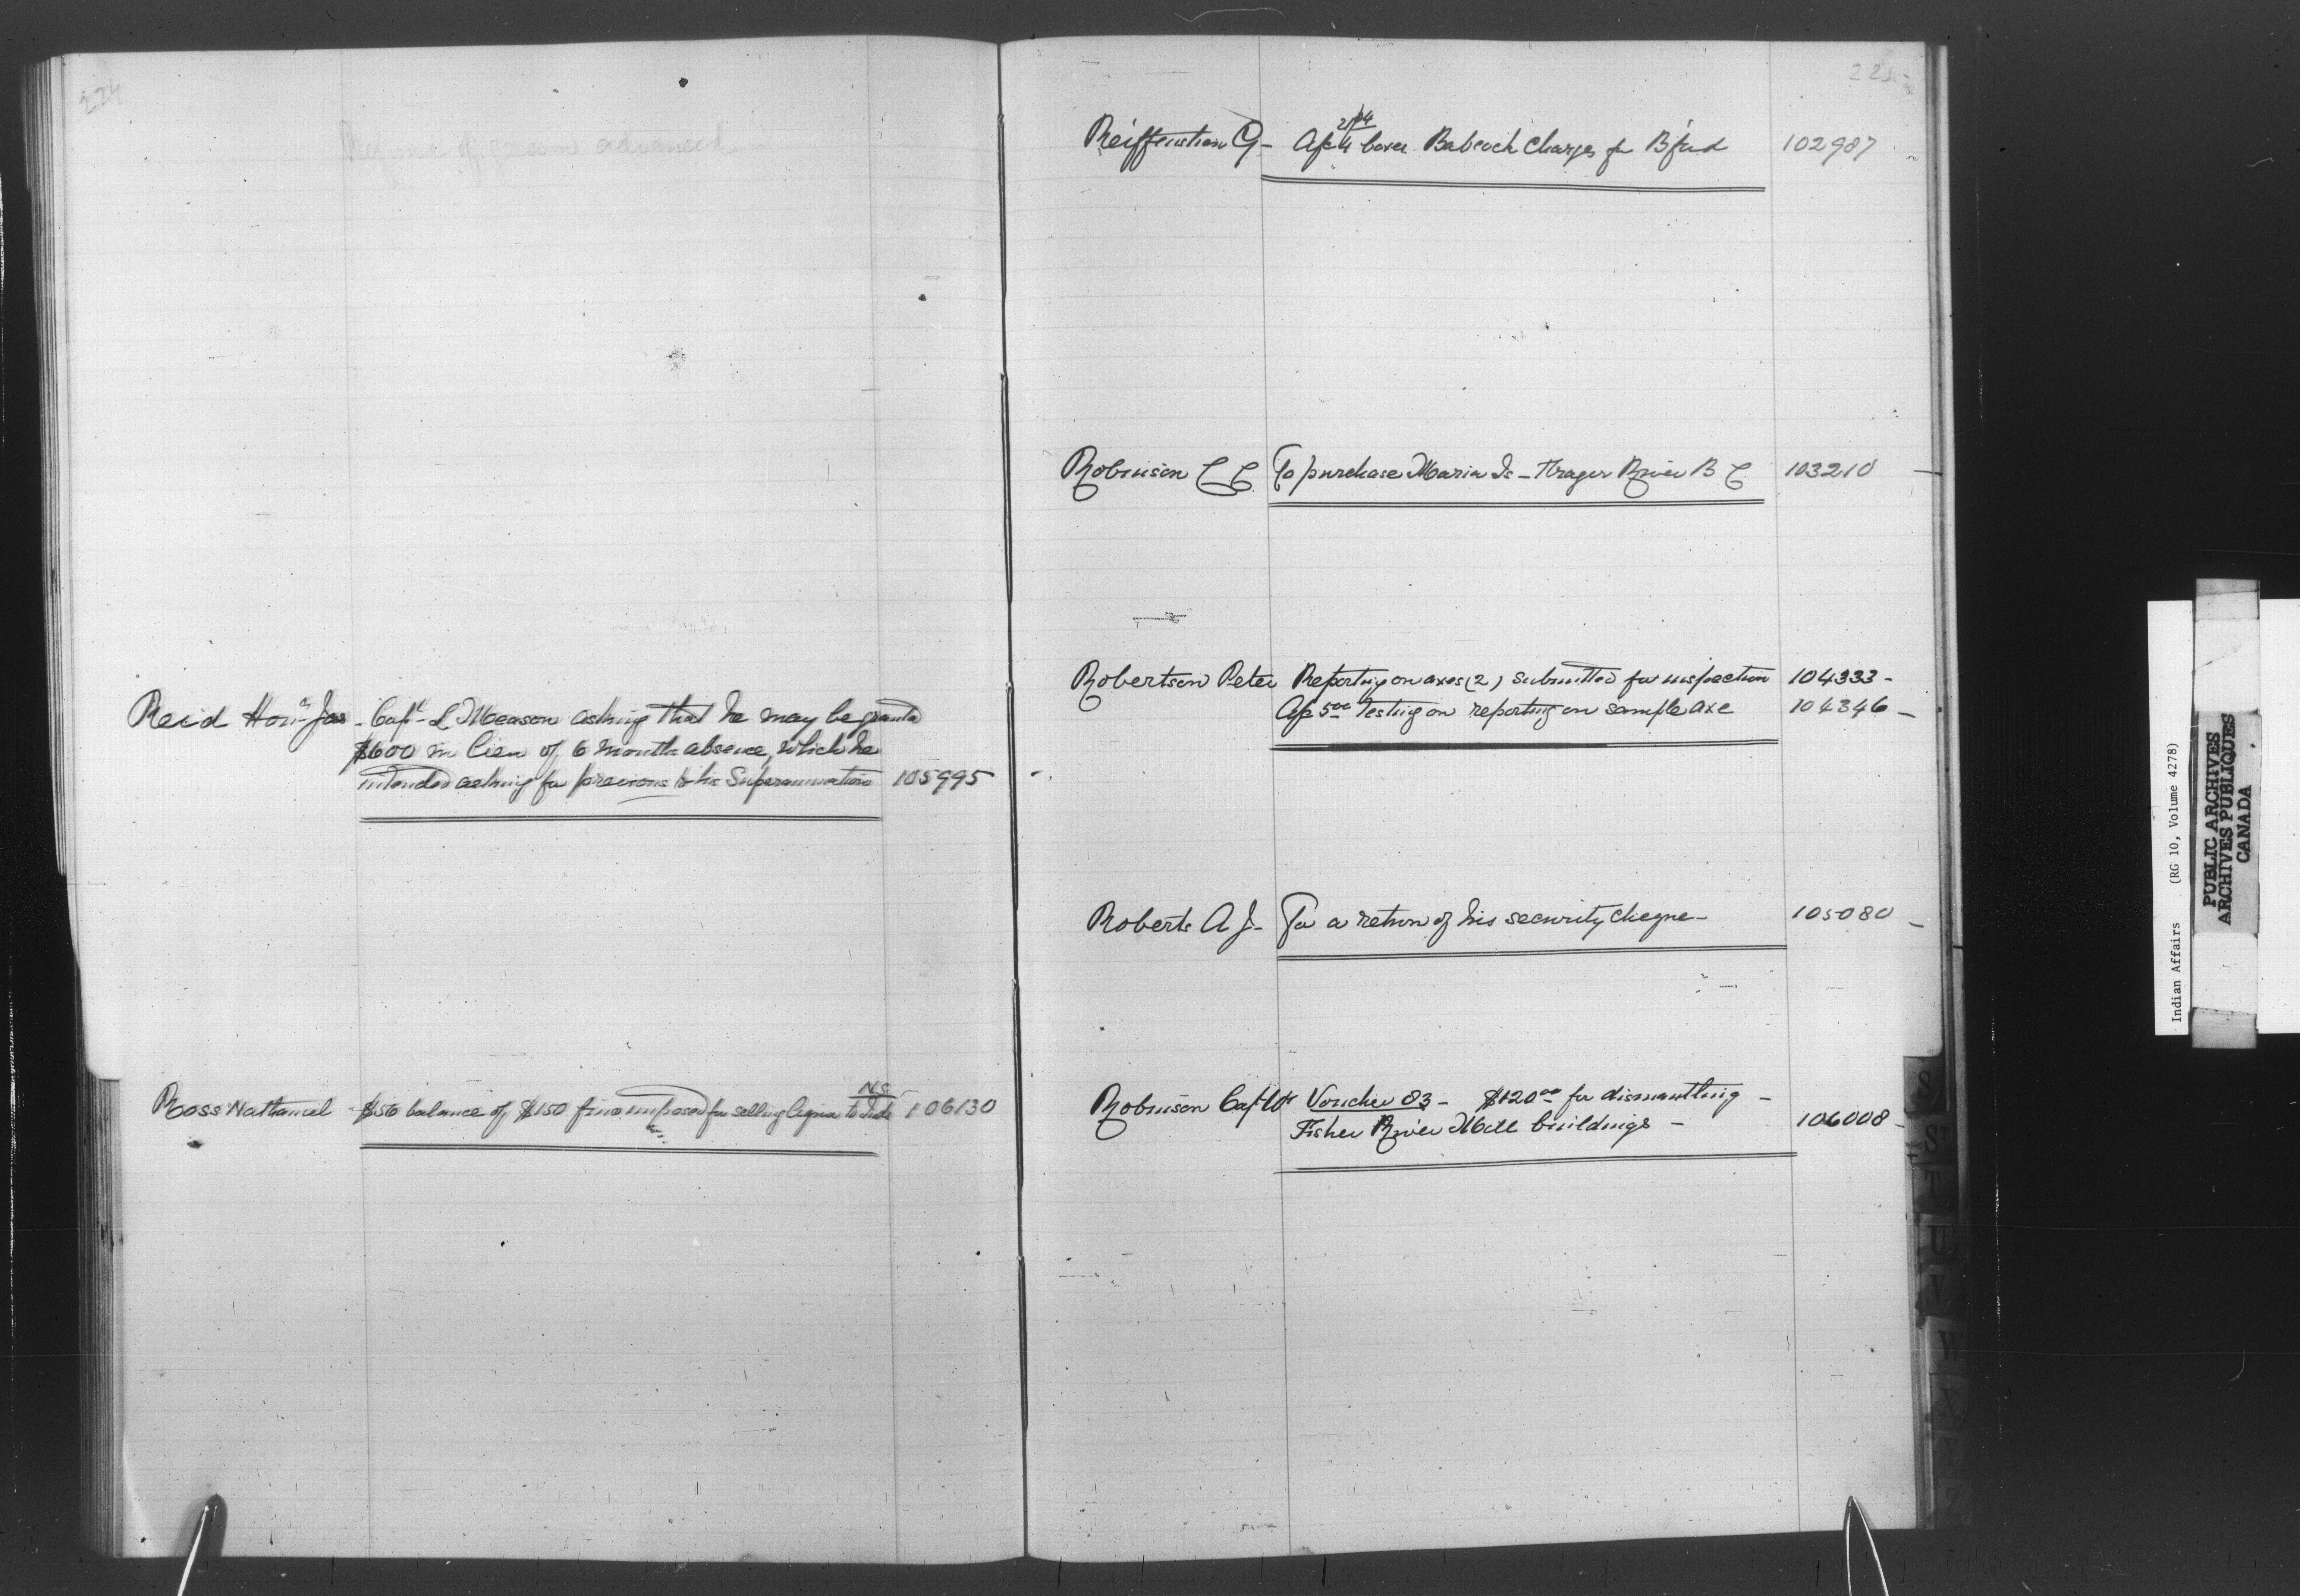 224
Refund of grain advanced
Reid Hon. Jas - Capt L Meason asking that he may be granted
$600 in lieu of 6 months absence, which he
intended asking for previous to his Superannuation 105995
N.S.
Ross Nathaniel - $50 balance of $150 fine imposed for selling liquor to Inds 106130
225
Reiffenstein G - a/c 4 boxes Babcock Charges for B'ford 102987
Robinson C C To purchase Maria Is - Frazer River B C 103210
Robertson Peter Reporting on axes (2) submitted for inspection 104333 -
a/c 5.00 Testing on reporting on sample axe 104346 -
Roberts A J - For a return of his security cheque - 105080 -
Robinson Capt Wm Voucher 83 - $120.00 for dismantling -
Fisher River Mill buildings - 106008 -
S
S
T
U
V
W
Y
Indian Affairs (RG 10, Volume 4278)
PUBLIC ARCHIVES
ARCHIVES PUBLIQUES
CANADA